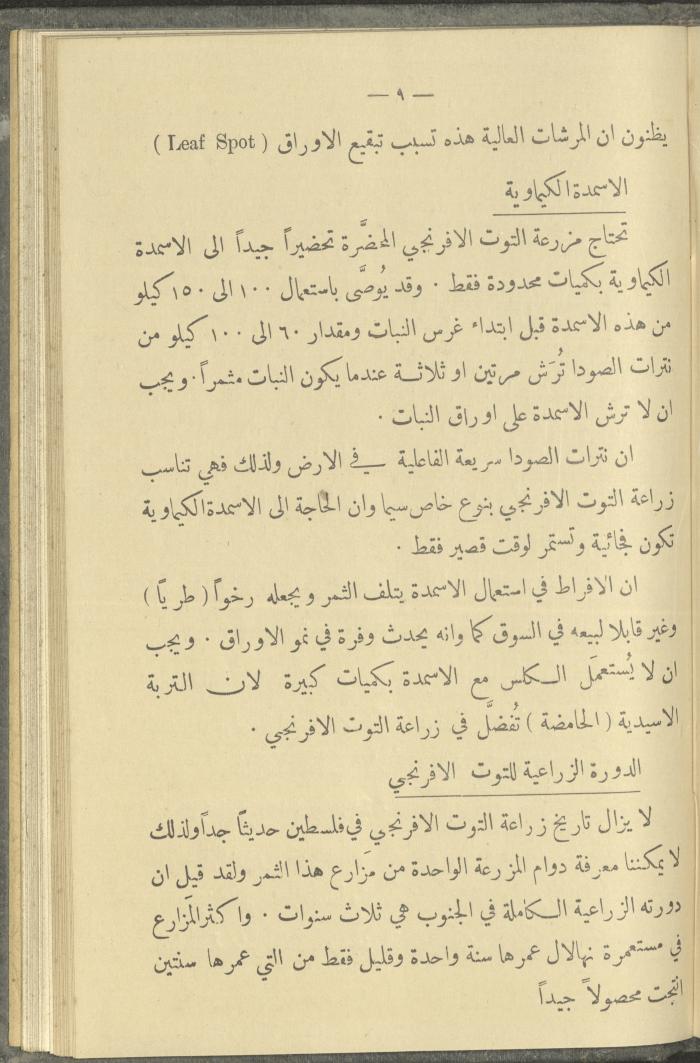 — ٩ —
يظنون ان المرشات العالية هذه تسبب تبقيع الاوراق ( Leaf Spot )
الاسمدة الكيماوية
تحتاج مزرعة التوت الافرنجي المحضَّرة تحضيراً جيداً الى الاسمدة
الكيماوية بكميات محدودة فقط . وقد يُوصَّى باستعمال ١٠٠ الى ١٥٠ كيلو
من هذه الاسمدة قبل ابتداء غرس النبات ومقدار ٦٠ الى ١٠٠ كيلو من
نترات الصودا تُرَش مرتين او ثلاثة عندما يكون النبات مثمراً . ويجب
ان لا ترش الاسمدة على اوراق النبات .
ان نترات الصودا سريعة الفاعلية في الارض ولذلك فهي تناسب
زراعة التوت الافرنجي بنوع خاص سيما وان الحاجة الى الاسمدة الكيماوية
تكون فجائية وتستمر لوقت قصير فقط .
ان الافراط في استعمال الاسمدة يتلف الثمر ويجعله رخواً ( طريّاً )
وغير قابلا لبيعه في السوق كما وانه يحدث وفرة في نمو الاوراق . ويجب
ان لا يُستعمَل الكلس مع الاسمدة بكميات كبيرة لان التربة
الاسيدية ( الحامضة ) تُفضَّل في زراعة التوت الافرنجي .
الدورة الزراعية للتوت الافرنجي
لا يزال تاريخ زراعة التوت الافرنجي في فلسطين حديثاً جداً ولذلك
لا يمكننا معرفة دوام المزرعة الواحدة من مَزارع هذا الثمر ولقد قيل ان
دورته الزراعية الكاملة في الجنوب هي ثلاث سنوات . واكثر المَزارع
في مستعمرة نهالال عمرها سنة واحدة وقليل فقط من التي عمرها سنتين
انتجت محصولاً جيداً